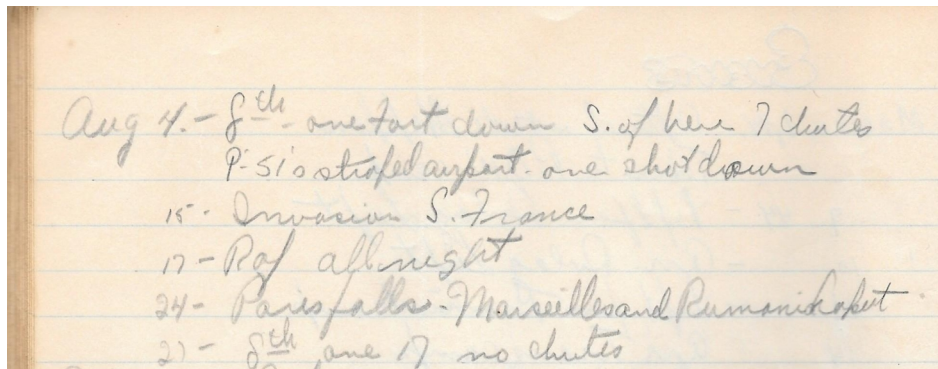 Aug 4. - 8th - one Fort down S. of here 7 chutes
P-51's strafed airport. one shot down
15 - Invasion S. France
17 - Raf all night
24 - Paris falls - Marseilles and Rumani kaput
27 - 8th one 17 no chutes